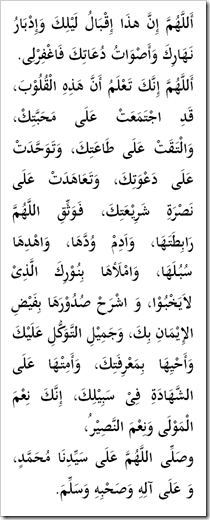 اَللَّهُمَّ إِنَّ هذَا إِقْبَالُ لَيْلِكَ وَإِدْبَارُ
نَهَارِكَ وَأَصْوَاتُ دُعَاتِكَ فَاغْفِرْلِى.
اَللَّهُمَّ إِنَّكَ تَعْلَمُ أَنَّ هَذِهِ الْقُلُوْبَ،
قَدِ اجْتَمَعَتْ عَلَى مَحَبَّتِكَ،
وَالْتَقَتْ عَلَى طَاعَتِكَ، وَتَوَحَّدَتْ
عَلَى دَعْوَتِكَ، وَتَعَاهَدَتْ عَلَى
نَصْرَةِ شَرِيْعَتِكَ، فَوَثِّقِ اللَّهُمَّ
رَابِطَتَهَا، وَاَدِمْ وُدَّهَا، وَاهْدِهَا
سُبُلَهَا، وَامْلَأْهَا بِنُوْرِكَ الَّذِىْ
لاَيَخْبُوْا، وَ اشْرَحْ صُدُوْرَهَا بِفَيْضِ
الْإِيْمَانِ بِكَ، وَجَمِيْلِ التَّوَكُّلِ عَلَيْكَ
وَأَحْيِهَا بِمَعْرِفَتِكَ، وَأَمِتْهَا عَلَى
الشَّهَادَةِ فِىْ سَبِيْلِكَ، إِنَّكَ نِعْمَ
الْمَوْلَى وَنِعْمَ النَّصِيْرُ،
وصَلِّى اللَّهُمَّ عَلَى سَيِّدِنَا مُحَمَّدٍ،
وَ عَلَى آلِهِ وَصَحْبِهِ وَسَلِّمَ.